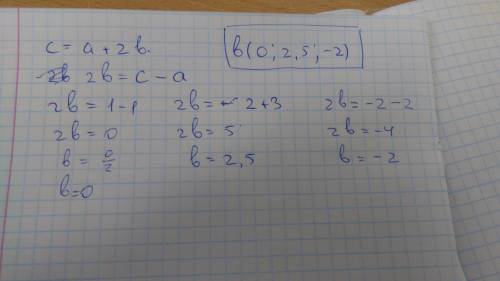 c = a + 2b.
b(0; 2,5; -2)
2b = c - a
2b = 1 - 1 2b = 2 + 3 2b = -2 - 2
2b = 0 2b = 5 2b = -4
b = 0/2 b = 2,5 b = -2
b = 0